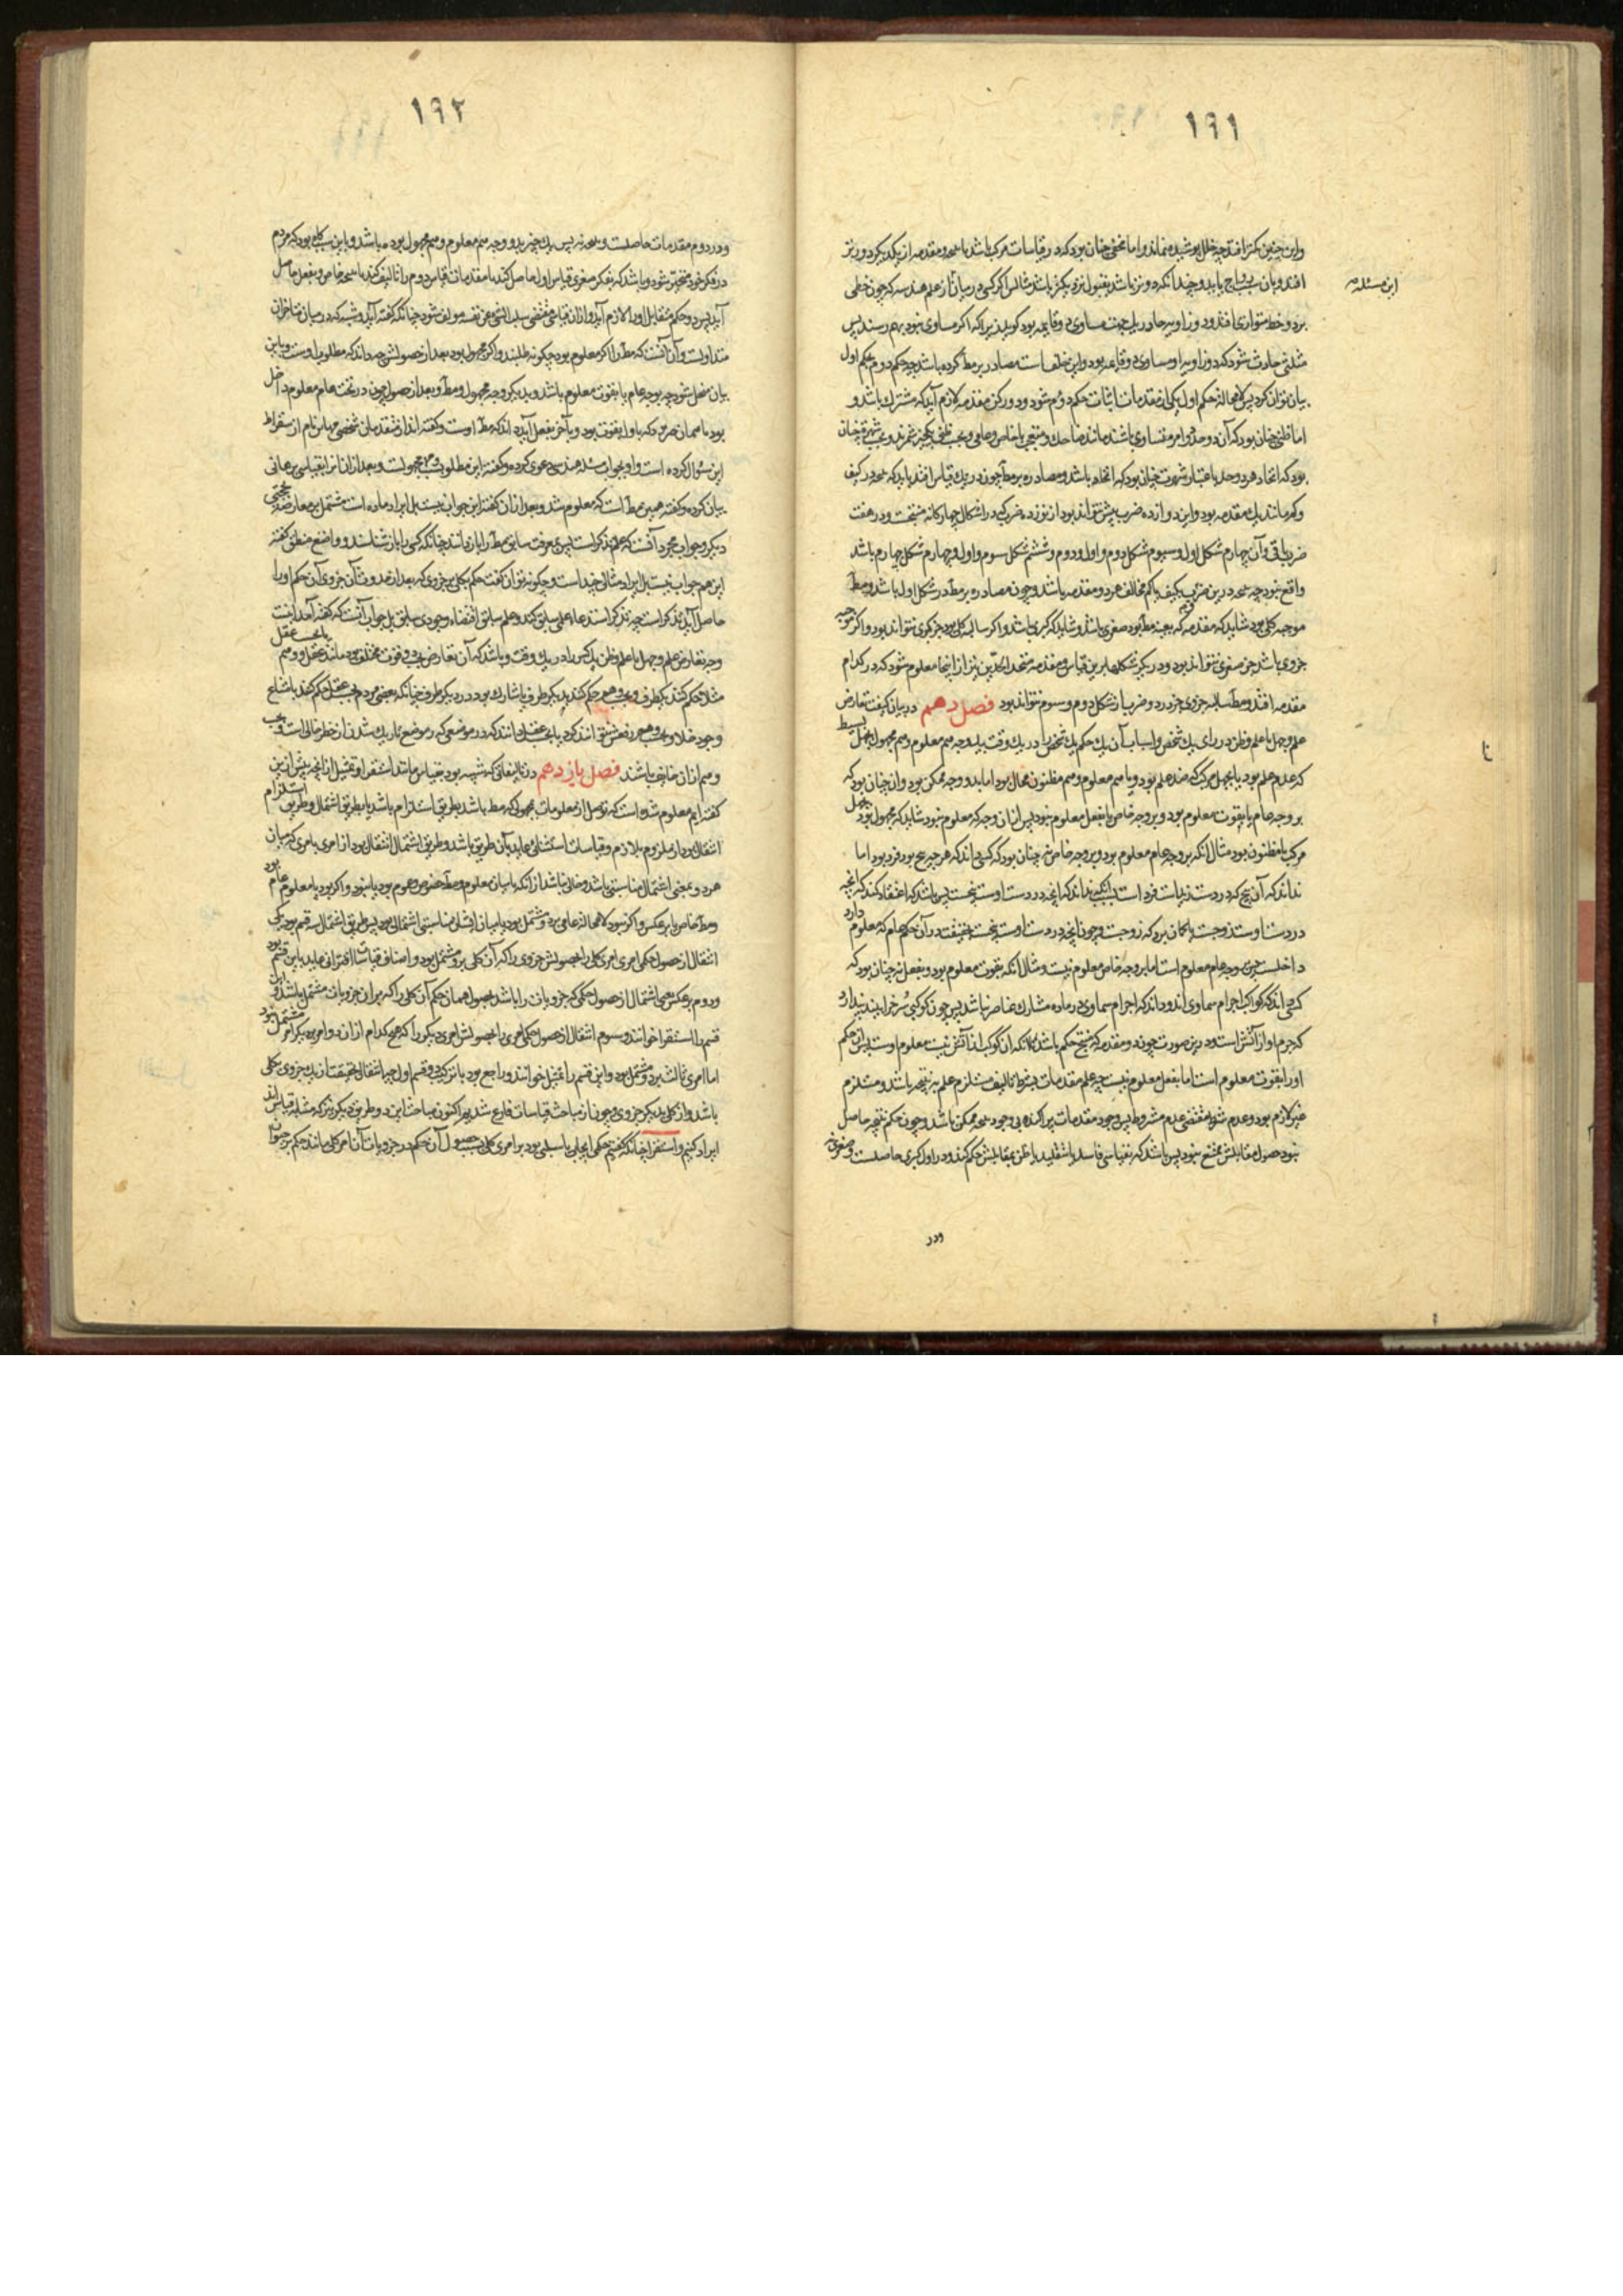 ١٩١
واین چنین کمتر افتد چه خلل پوشیده نماند و اما مخفی چنان بود که در قیاسات مرکب باشد یا نتیجه و مقدمه از یکدیگر دورتر
این مسئله
افتد و بیان باید و چندانکه دورتر باشد بقبول نزدیکتر باشد مثالش اگر کسی در بیان از علم هندسه که چون خطی
بر دو خط متوازی افتد و دو زاویه حادث در یک جهت مساوی دو قایمه بود گوید زیرا که اگر مساوی نبود بهم رسند پس
مثلثی حادث شود که دو زاویه او مساوی دو قایمه بود و این خلف است مصادره بر مط کرده باشد چه حکم دوم بحکم اول
بیان توان کرد پس لامحاله حکم اول یکی از مقدمات اثبات حکم دوم شود و در رکن مقدمه لازم آید که مشترک باشد و
اما ظنی چنان بود که آن دو حد دو امر متساوی باشند مانند ضاحک و متعجب یا خاص و عامی و بحسب ظن یک چیز شمرند و بحسب شهرت چنان
بود که اتحاد هر دو حد باعتبار شهرت چنان بود که اتحاد باشد و مصادره بر مط چون در یک قیاس افتد باید که نتیجه در کیف
و کم مانند یک مقدمه بود و این دوازده ضرب بیش نتواند بود از نوزده ضرب که در اشکال چهارگانه منتجست و در هفت
ضرب باقی و آن چهارم شکل اول و سیوم شکل دوم و اول و دوم و ششم شکل سوم و اول و چهارم شکل چهارم باشد
واقع نبود چه نتیجه در این ضروب بکیف یا کم مخالف هر دو مقدمه باشد و چون مصادره بر مط در شکل اول باشد و مط
موجبه کلی بود شاید که مقدمه که بعینه مط بود صغری باشد و شاید که کبری باشد و اگر سالبه کلی بود جز کبری نتواند بود و اگر موجبه
جزوی باشد جز صغری نتواند بود و در دیگر شکلها برین قیاس و مقدمه متحد الحدین نیز از اینجا معلوم شود که در کدام
مقدمه افتد و مط سالبه جزوی جز در دو ضرب از شکل دوم و سیوم نتواند بود فصل دهم در بیان کیفیت تعارض
علم و جهل یا علم و ظن در رای یک شخص و اسباب آن یک حکم یک شخص را در یک وقت بیک وجه هم معلوم و هم مجهول بجهل بسیط
تا
که عدم علم بود یا بجهل مرکب که ضد علم بود و یا هم معلوم و هم مظنون محال بود اما بدو وجه ممکن بود و آن چنان بود که
بر وجه عام یا بقوت معلوم بود و بر وجه خاص یا بفعل معلوم نبود پس از آن وجه که معلوم نبود شاید که مجهول بود بجهل
مرکب یا مظنون بود مثال آنکه بر وجه عام معلوم بود و بر وجه خاص نه چنان بود که کسی داند که هر چه پنج بود فرد بود اما
نداند که آن پنج که در دست زید است فرد است بسبب آنکه نداند که آنچه در دست اوست پنجست پس باشد که اعتقاد کند که آنچه
در دست اوست زوجست یا گمان برد که زوجست و چون آنچه در دست اوست پنجست بحقیقت در آن حکم عام که معلوم دارد
داخلست پس بر وجه عام معلوم است اما بر وجه خاص معلوم نیست و مثال آنکه بقوت معلوم بود و بفعل نه چنان بود که
کسی داند که کواکب اجرام سماوی اند و داند که اجرام سماوی در ماده مشارک عناصر نباشد پس چون کوکبی سرخ را بیند پندارد
که جرم او از آتش است و در این صورت چون دو مقدمه که منتج حکم باشد بآنکه آن کوکب از آتش نیست معلوم اوست پس این حکم
او را بقوت معلوم است اما بفعل معلوم نیست چه علم مقدمات بشرط تالیف مستلزم علم به نتیجه باشد و مستلزم
غیر لازم بود و عدم شرط مقتضی عدم مشروط پس وجود مقدمات پراکنده بی وجود نتیجه ممکن باشد و چون حکم نتیجه حاصل
نبود حصول مقابلش ممتنع نبود پس باشد که بقیاسی فاسد یا بتقلید یا ظن بمقابلش حکم کند و در اول کبری حاصلست و صغری نه
ودر
١٩٢
و در دوم مقدمات حاصلست و نتیجه نه پس یک چیز بدو وجه هم معلوم و هم مجهول بوده باشد و باین سبب گاه بود که مردم
در فکر خود متحیر شود و باشد که بفکر صغری قیاس اول حاصل کند یا مقدمات قیاس دوم را تالیف کند تا نتیجه خاص و بفعل حاصل
آید پس دو حکم متقابل او را لازم آید و از آن قیاسی مقتضی سلب الشی عن نفسه مولف شود چنانکه گفته آید و شبهه که در میان متاخران
متداولست و آن آنست که مط را اگر معلوم بود چگونه طلبند و اگر مجهول بود بعد از حصولش چه داند که مطلوب اوست و باین
بیان منحل شود چه بوجه عام یا بقوت معلوم باشد و بدیگر وجه مجهول و مط و بعد از حصول چون در تحت عام معلوم داخل
بود یا همان صورت که باول بقوت بود و بآخر بفعل آید داند که مط اوست و گفته اند از متقدمان شخصی ماین نام از سقراط
این سوال کرده است و او بجواب مسئله هندسی دعوی کرده و گفته این مطلوب مجهولست و بعد از آن آنرا بقیاسی برهانی
بیان کرده و گفته همین مط است که معلوم شد و بعد از آن گفته این جواب نیست بل ایراد ماده است مشتمل بر معارضه بحجتی
دیگر و جواب مجرد آنست که علم تذکر است پس بمعرفت سابق مط را باز دانند چنانکه کسی را باز شناسند و واضع منطق گفته
این هم جواب نیست بل ایراد مثالی چند است و چگونه توان گفت حکم بکلی بر جزوی که بعد از حدوث آن جزوی آن حکم او را
حاصل آید تذکر است چه تذکر استدعاء علمی سابق کند و علم سابق اقتضاء وجودی سابق بل جواب آنست که گفته آمد اینست
وجه تعارض علم و جهل یا علم و ظن یک کس را در یک وقت و باشد که آن تعارض بحسب دو قوت مختلف بود مانند عقل و وهم
مثلا حکم کند بیک طرف و بحسب وهم حکم کند بدیگر طرف یا شاک بود در دیگر طرف چنانکه بعضی مردم بحسب عقل حکم کند بامتناع
وجود خلا و بحسب وهم رفعش نتوانند کرد یا بحسب عقل دانند که در موضعی که موضع تاریک شدن از خطر خالی است و بحسب
وهم از آن خایف باشند فصل یازدهم در تالیفاتی که شبیه بود بقیاس مانند استقرا و تمثیل از آنچه پیش ازین
گفته ایم معلوم شده است که توصل از معلومات بمجهولی که مط باشد بطریق استلزام باشد یا بطریق اشتمال و طریق استلزام
انتقال بود از ملزوم بلازم و قیاسات استثنائی عاید بآن طریق باشد و طریق اشتمال انتقال بود از امری بامری که میان
هر دو بمعنی اشتمال مناسبتی باشد و خالی نباشد از آنکه یا میان معلوم و مط خصوص و عموم بود یا نبود و اگر بود یا معلوم عام بود
و مط خاص یا برعکس و اگر نبود لامحاله عامی بر هر دو مشتمل بود یا میان ایشان مناسبتی اشتمالی بود پس طریق اشتمال سه قسم بود یکی
انتقال از حصول حکمی امری کلی را بحصولش جزوی را که آن کلی برو مشتمل بود و اصناف قیاسات اقترانی عاید باین قسم بود
و دوم برعکس یعنی اشتمال از حصول حکمی که جزویات را باشد بحصول همان حکم آن کلی را که بر آن جزویات مشتمل باشد و این
قسم را استقرا خوانند و سیوم انتقال از حصول حکمی امری را بحصولش امری دیگر را که هیچ کدام از آن دو امر بر دیگر امر مشتمل نبود
اما امری ثالث بر هر دو مشتمل بود و این قسم را تمثیل خوانند و راجع بود با ترکیب دو قسم اول چه انتقال بحقیقت از یک جزوی بکلی
باشد و از کلی بدیگر جزوی و چون از مباحث قیاسات فارغ شدیم اکنون مباحث این دو طریق دیگر نیز که مشابه قیاس اند
ایراد کنیم و استقرا چنانکه گفتیم حکمی ایجابی یا سلبی بود بر امری کلی بسبب حصول آن حکم در جزویات آن امر کلی مانند حکم بر حیوان